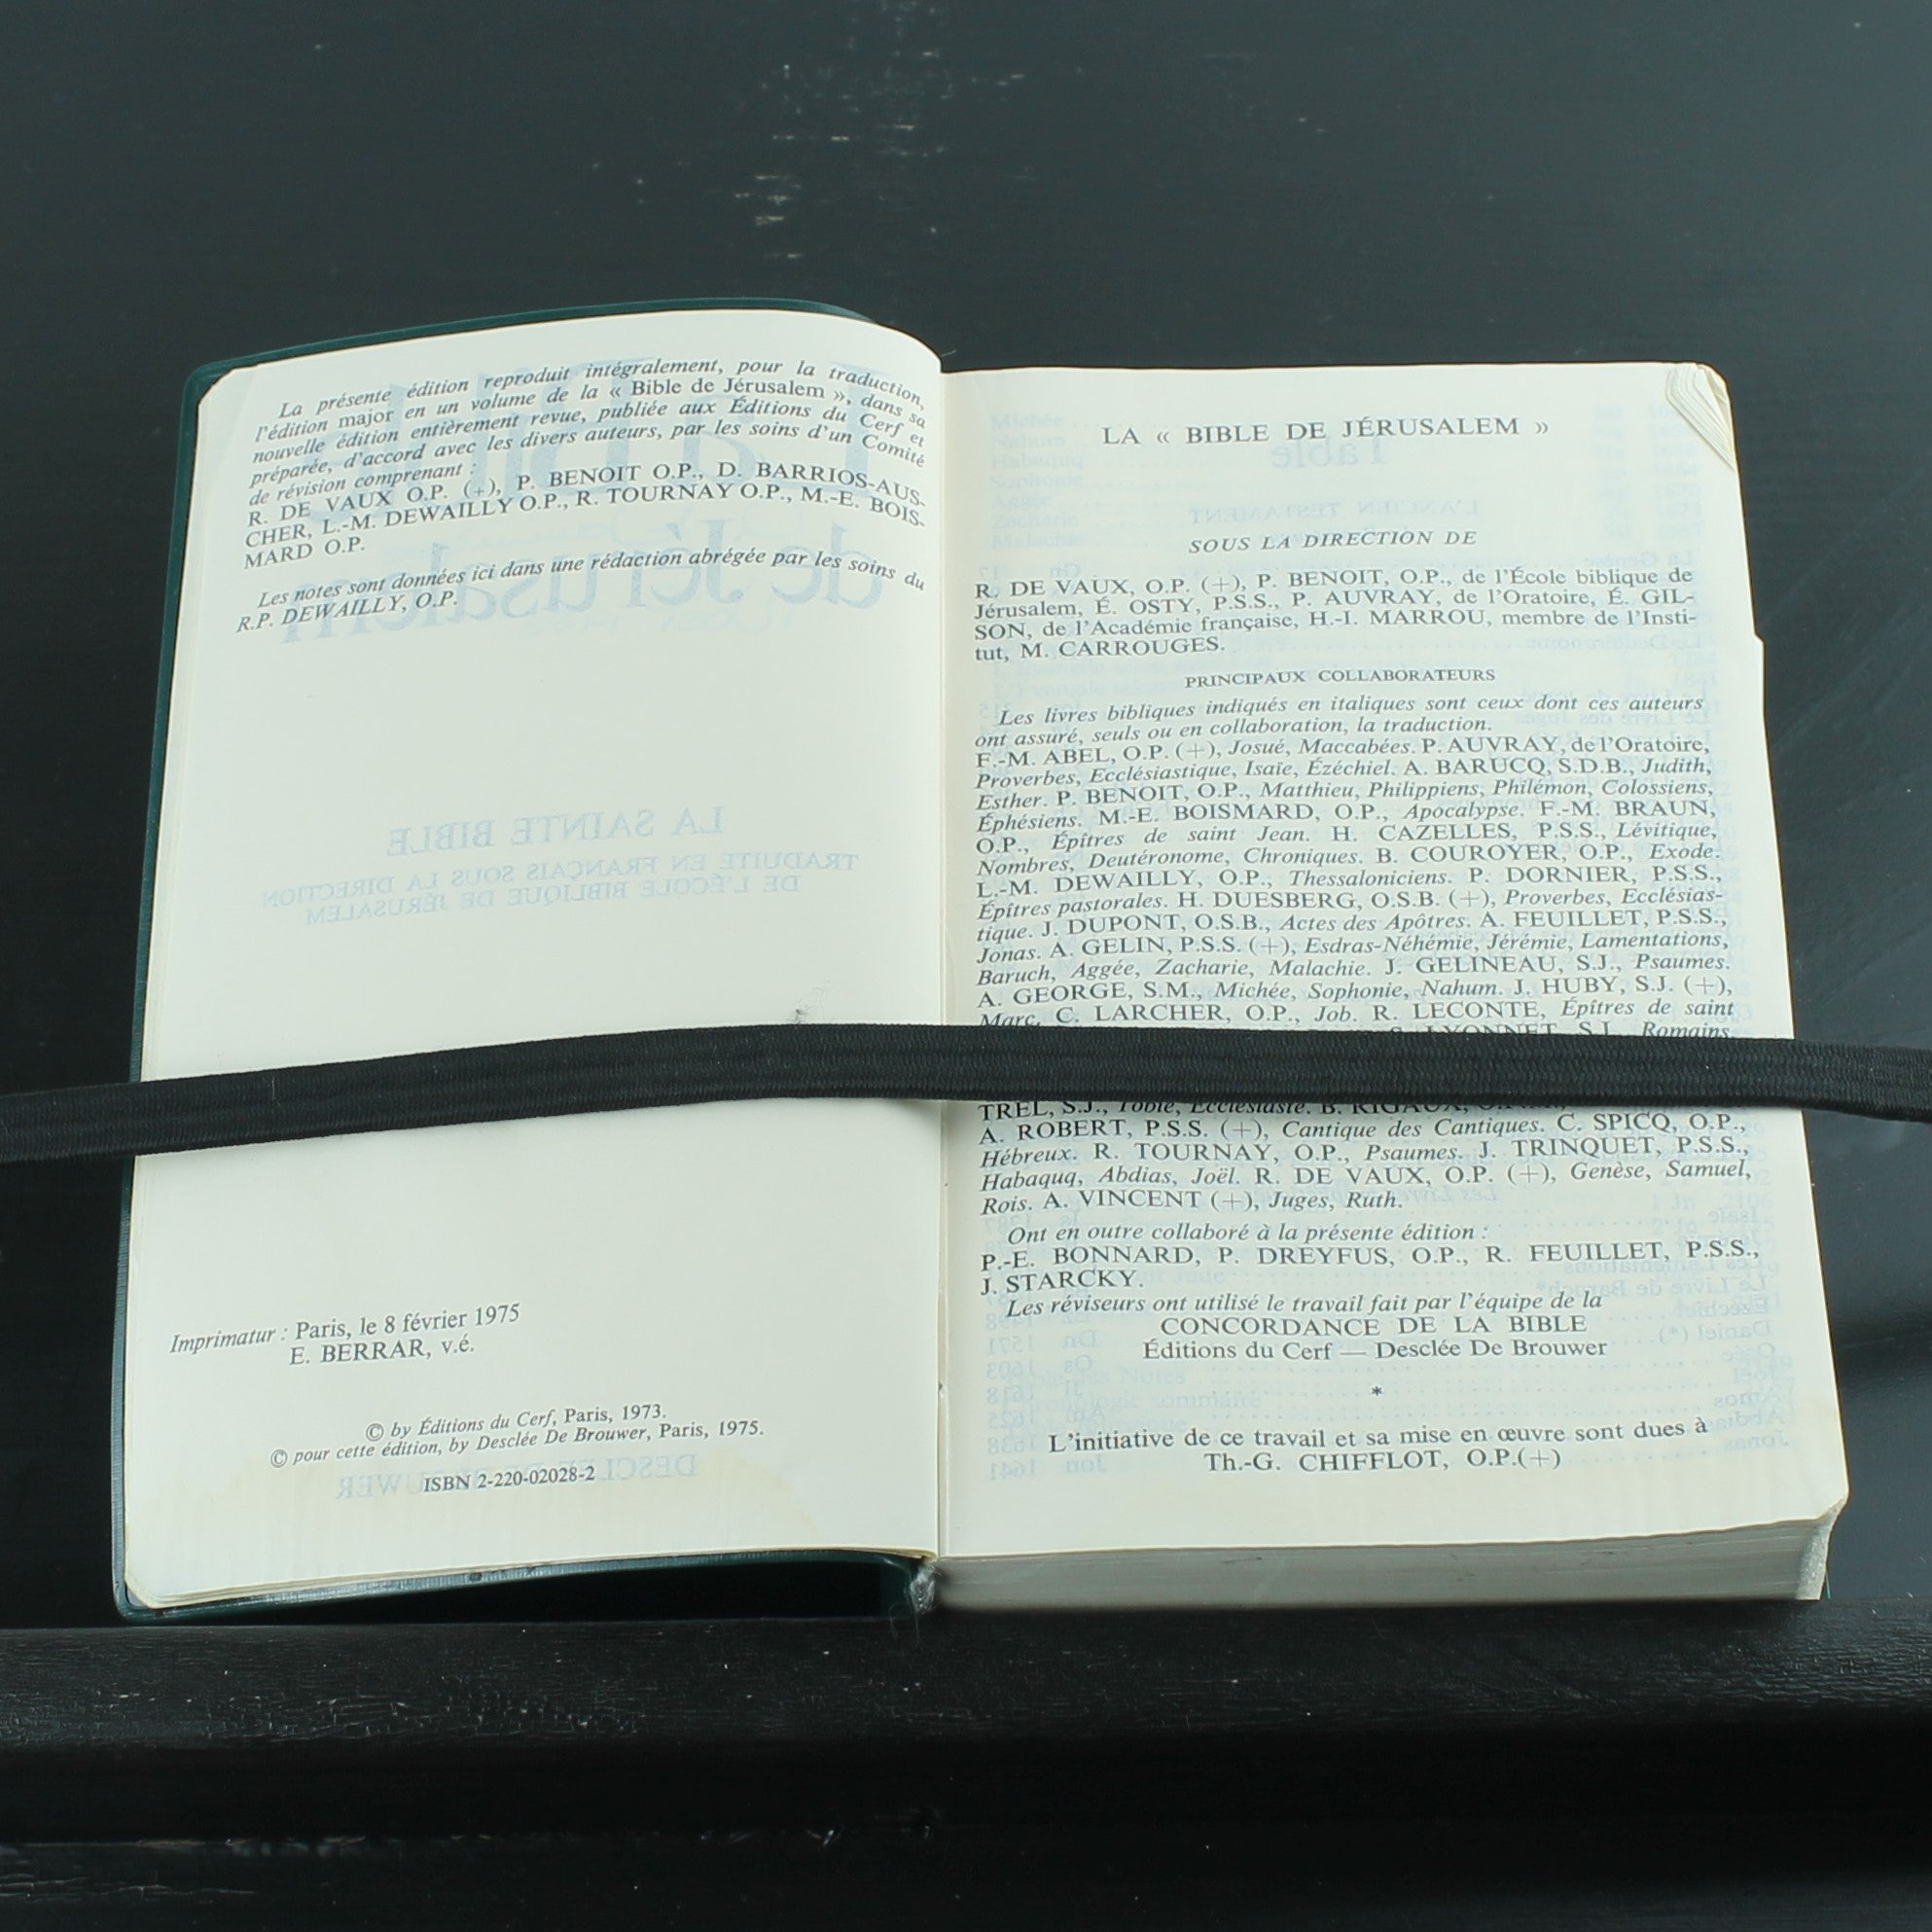 La présente édition reproduit intégralement, pour la traduction,
l'édition major en un volume de la « Bible de Jérusalem », dans sa
nouvelle édition entièrement revue, publiée aux Éditions du Cerf et
préparée, d'accord avec les divers auteurs, par les soins d'un Comité
de révision comprenant :
R. DE VAUX O.P. (+), P. BENOIT O.P., D. BARRIOS-AUS-
CHER, L.-M. DEWAILLY O.P., R. TOURNAY O.P., M.-E. BOIS-
MARD O.P.
Les notes sont données ici dans une rédaction abrégée par les soins du
R.P. DEWAILLY, O.P.
Imprimatur : Paris, le 8 février 1975
E. BERRAR, v.é.
© by Éditions du Cerf, Paris, 1973.
© pour cette édition, by Desclée De Brouwer, Paris, 1975.
ISBN 2-220-02028-2
LA « BIBLE DE JÉRUSALEM »
SOUS LA DIRECTION DE
R. DE VAUX, O.P. (+), P. BENOIT, O.P., de l'École biblique de
Jérusalem, É. OSTY, P.S.S., P. AUVRAY, de l'Oratoire, É. GIL-
SON, de l'Académie française, H.-I. MARROU, membre de l'Insti-
tut, M. CARROUGES.
PRINCIPAUX COLLABORATEURS
Les livres bibliques indiqués en italiques sont ceux dont ces auteurs
ont assuré, seuls ou en collaboration, la traduction.
F.-M. ABEL, O.P. (+), Josué, Maccabées. P. AUVRAY, de l'Oratoire,
Proverbes, Ecclésiastique, Isaïe, Ézéchiel. A. BARUCQ, S.D.B., Judith,
Esther. P. BENOIT, O.P., Matthieu, Philippiens, Philémon, Colossiens,
Éphésiens. M.-E. BOISMARD, O.P., Apocalypse. F.-M. BRAUN,
O.P., Épîtres de saint Jean. H. CAZELLES, P.S.S., Lévitique,
Nombres, Deutéronome, Chroniques. B. COUROYER, O.P., Exode.
L.-M. DEWAILLY, O.P., Thessaloniciens. P. DORNIER, P.S.S.,
Épîtres pastorales. H. DUESBERG, O.S.B. (+), Proverbes, Ecclésias-
tique. J. DUPONT, O.S.B., Actes des Apôtres. A. FEUILLET, P.S.S.,
Jonas. A. GELIN, P.S.S. (+), Esdras-Néhémie, Jérémie, Lamentations,
Baruch, Aggée, Zacharie, Malachie. J. GELINEAU, S.J., Psaumes.
A. GEORGE, S.M., Michée, Sophonie, Nahum. J. HUBY, S.J. (+),
Marc. C. LARCHER, O.P., Job. R. LECONTE, Épîtres de saint
LYONNET, S.J., Romains,
TREL, S.J., Tobie, Ecclésiaste. B. RIGAUX,
A. ROBERT, P.S.S. (+), Cantique des Cantiques. C. SPICQ, O.P.,
Hébreux. R. TOURNAY, O.P., Psaumes. J. TRINQUET, P.S.S.,
Habaquq, Abdias, Joël. R. DE VAUX, O.P. (+), Genèse, Samuel,
Rois. A. VINCENT (+), Juges, Ruth.
Ont en outre collaboré à la présente édition :
P.-E. BONNARD, P. DREYFUS, O.P., R. FEUILLET, P.S.S.,
J. STARCKY.
Les réviseurs ont utilisé le travail fait par l'équipe de la
CONCORDANCE DE LA BIBLE
Éditions du Cerf — Desclée De Brouwer
*
L'initiative de ce travail et sa mise en œuvre sont dues à
Th.-G. CHIFFLOT, O.P.(+)